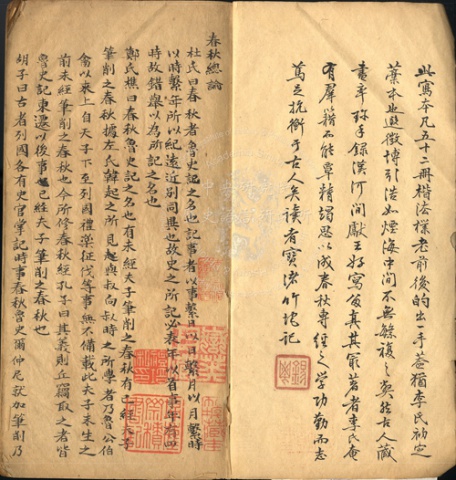 此寫本凡五十二冊楷法樸老前後的出一手蓋猶李氏初定
藁本也徵博引浩如煙海中間不無繁複之弊然古人藏
書率珍手錄漢河間獻王好寫真其著者李氏奄
有羣籍而能覃精竭思以成春秋專經之學功勤而志
篤足抗衡于古人矣讀者寶諸竹垞記
春秋總論
杜氏曰春秋者魯史記之名也記事者以事繫日以日繫月以月繫時
以時繫年所以紀遠近別同異也故史之所記必表年以首事年有四
時故錯舉以為所記之名也
鄭氏樵曰春秋魯史記之名也有未經夫子筆削之春秋有已經夫子
筆削之春秋據左氏韓起之所見與叔向叔時之所學者乃魯公伯
禽以來上自天子下至列國禮樂征伐等事無不備載此夫子未生之
前未經筆削之春秋也今所修春秋經孔子曰其義則丘竊取之者皆
魯史記東遷以後事已經夫子筆削之春秋也
胡子曰古者列國各有史官掌記時事春秋魯史爾仲尼就加筆削乃